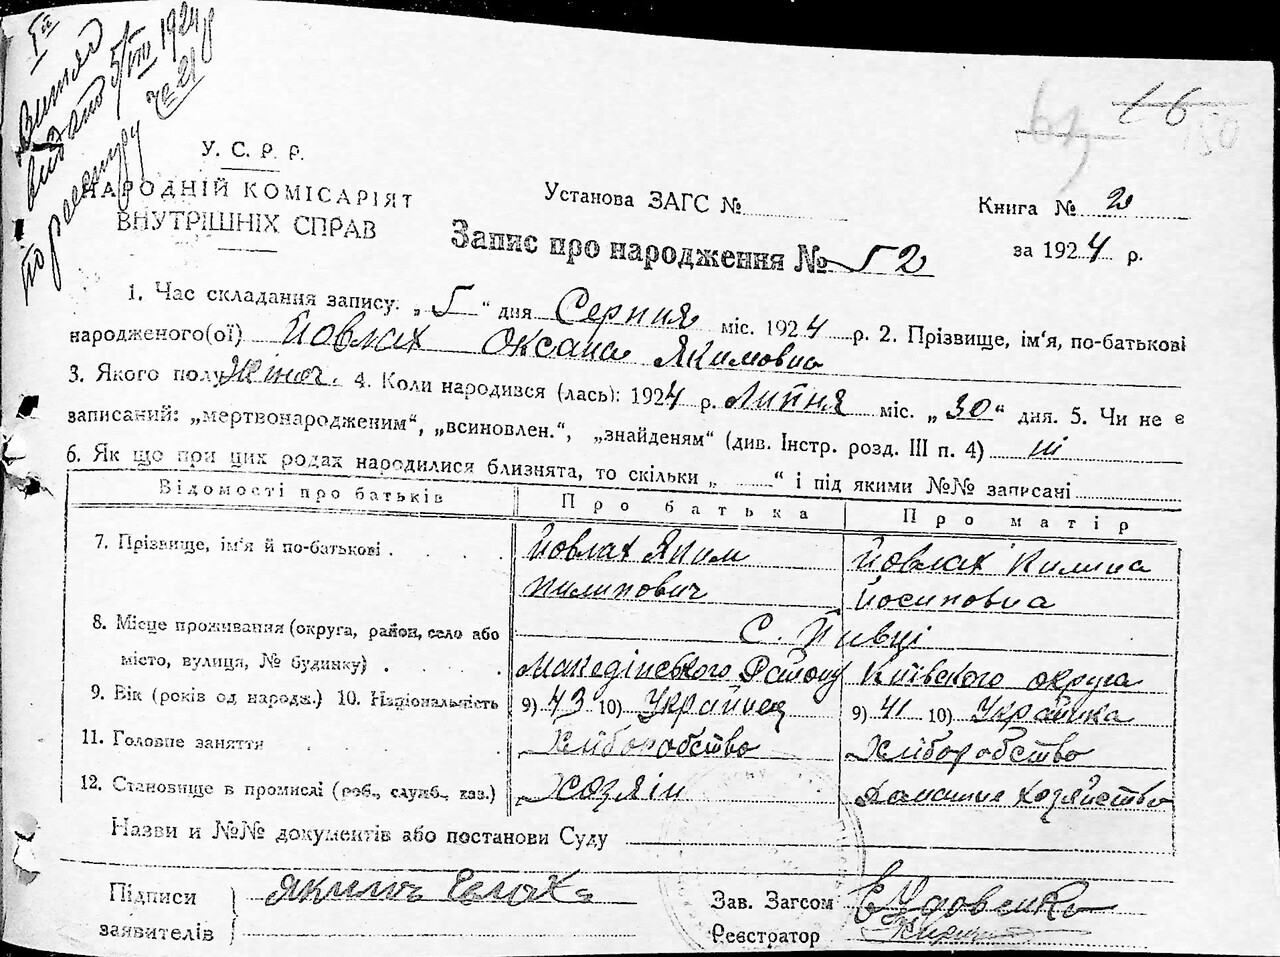 І й
Витяг
видано 5/VIII 1924 р
по реєстру че 218
У. С. Р. Р.
НАРОДНІЙ КОМІСАРІЯТ
ВНУТРІШНІХ СПРАВ
Установа ЗАГС №
Книга № 2
за 1924 р.
Запис про народження № 52
1. Час складання запису: „5“ дня Серпня міс. 1924 р. 2. Прізвище, ім'я, по-батькові
народженого(ої) Йовлах Оксана Якимовна
3. Якого полу Жіноч. 4. Коли народився (лась): 1924 р. Липня міс. „30“ дня. 5. Чи не є
записаний: „мертвонародженим“, „всиновлен.“, „знайденям“ (див. Інстр. розд. III п. 4) ні
6. Як що при цих родах народилися близнята, то скільки „ “ і під якими №№ записані
Відомості про батьків Про батька Про матір
7. Прізвище, ім'я й по-батькові Йовлах Яким Йовлах Килина
Пилипович Йосиповна
8. Місце проживання (округа, район, село або С. Пивці
місто, вулиця, № будинку) Македінського Району Київського округа
9. Вік (років од народж.) 10. Національність 9) 43 10) Українец 9) 41 10) Українка
11. Головне заняття Хліборобство Хліборобство
12. Становище в промислі (роб., служб., хаз.) Хозяін Домашне хозяйство
Назви и №№ документів або постанови Суду
Підписи Зав. Загсом Удовенко
заявителів Реєстратор